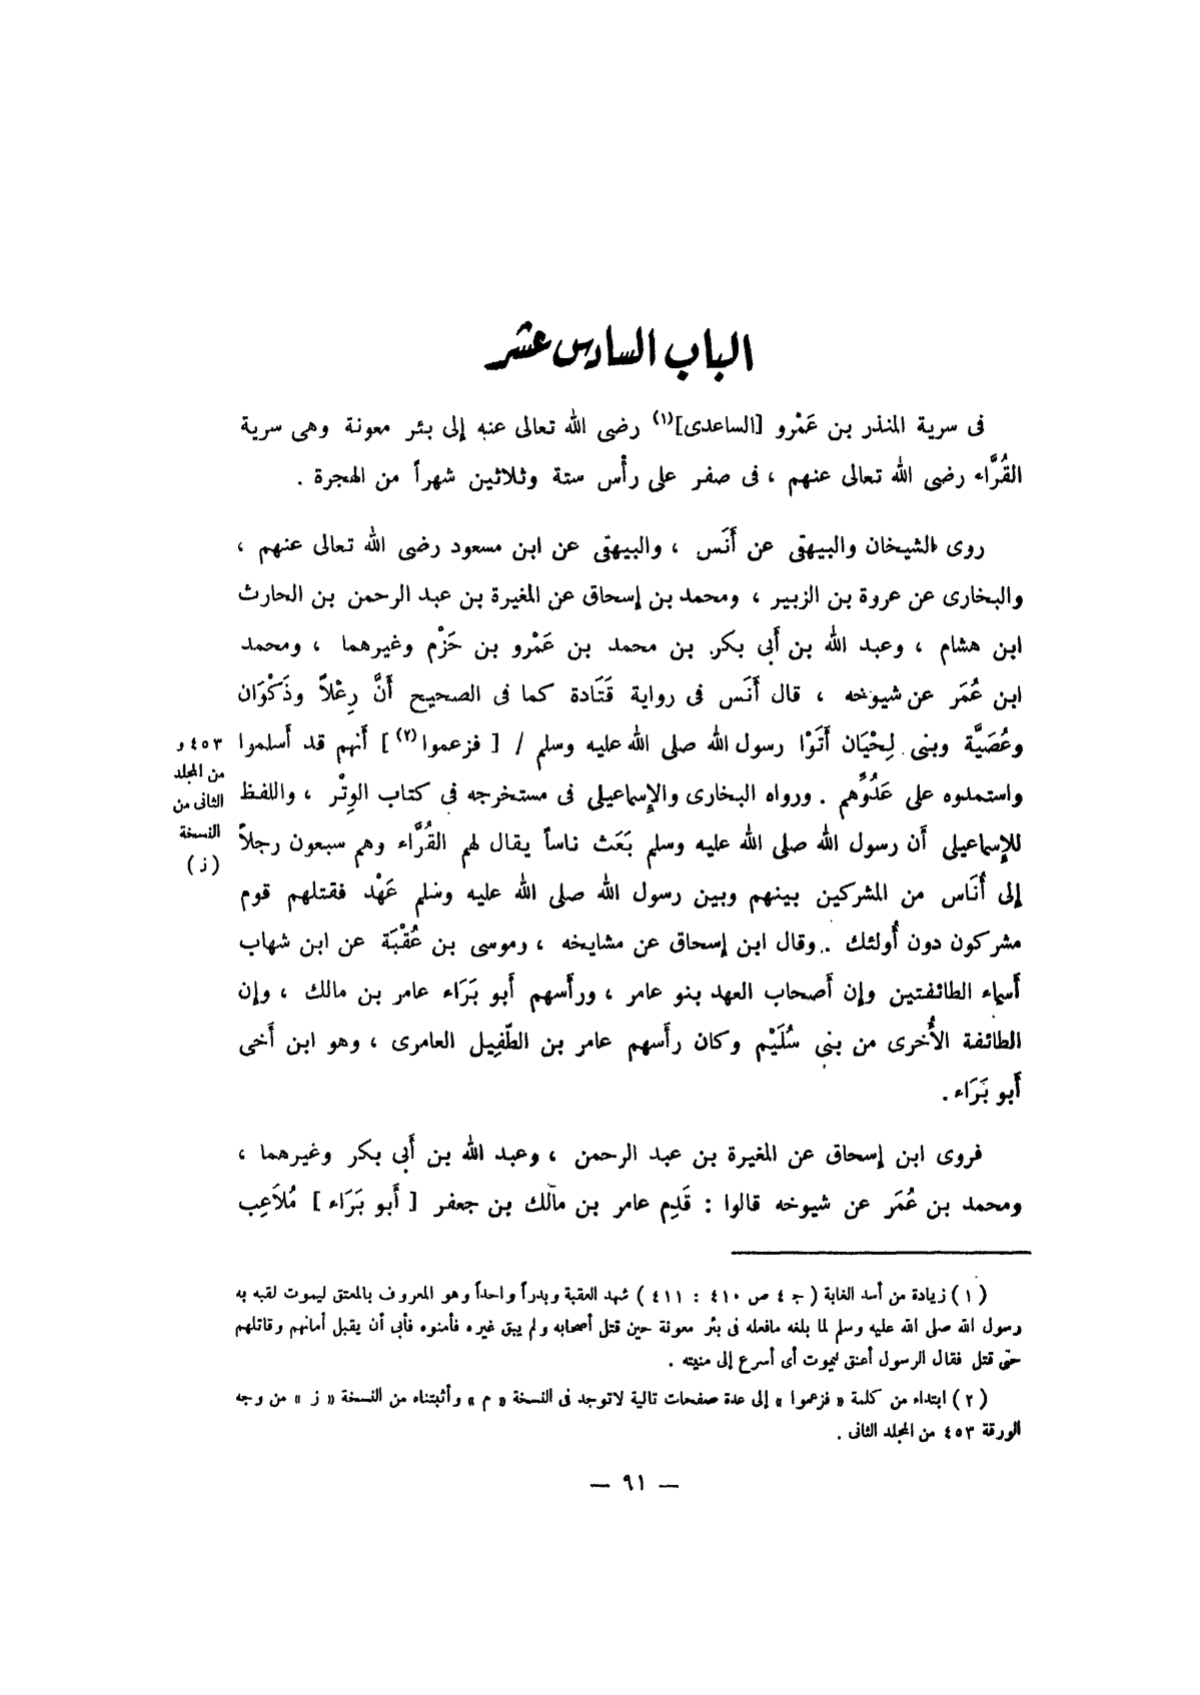 الباب السادس عشر
فى سرية المنذر بن عَمْرو [الساعدى](١) رضى الله تعالى عنه إلى بئر معونة وهى سرية
القُرَّاء رضى الله تعالى عنهم ، فى صفر على رأْس ستة وثلاثين شهراً من الهجرة .
روى الشيخان والبيهقى عن أَنَس ، والبيهقى عن ابن مسعود رضى الله تعالى عنهم ،
والبخارى عن عروة بن الزبير ، ومحمد بن إسحاق عن المغيرة بن عبد الرحمن بن الحارث
ابن هشام ، وعبد الله بن أَبى بكر بن محمد بن عَمْرو بن حَزْم وغيرهما ، ومحمد
ابن عُمَر عن شيوخه ، قال أَنَس فى رواية قَتَادة كما فى الصحيح أَنَّ رِعْلاً وذَكْوَان
وعُصَيَّة وبنى لِحْيَان أَتَوْا رسول الله صلى الله عليه وسلم / [ فزعموا(٢) ] أَنهم قد أَسلموا
واستمدوه على عَدُوِّهم . ورواه البخارى والإسماعيلى فى مستخرجه فى كتاب الوِتْر ، واللفظ
للإسماعيلى أن رسول الله صلى الله عليه وسلم بَعَث ناساً يقال لهم القُرَّاء وهم سبعون رجلاً
إلى أُنَاس من المشركين بينهم وبين رسول الله صلى الله عليه وسلم عَهْد فقتلهم قوم
مشركون دون أُولئك . وقال ابن إسحاق عن مشايخه ، وموسى بن عُقْبَة عن ابن شهاب
أَسماء الطائفتين وإن أَصحاب العهد بنو عامر ، ورأْسهم أَبو بَرَاء عامر بن مالك ، وإن
الطائفة الأُخرى من بنى سُلَيْم وكان رأَسهم عامر بن الطُّفِيل العامرى ، وهو ابن أَخى
أَبو بَرَاء .
٤٥٣ و
من المجلد
الثانى من
النسخة
( ز )
فروى ابن إسحاق عن المغيرة بن عبد الرحمن ، وعبد الله بن أَبى بكر وغيرهما ،
ومحمد بن عُمَر عن شيوخه قالوا : قَدِم عامر بن مالك بن جعفر [ أَبو بَرَاء ] مُلاَعِب
( ١ ) زيادة من أسد الغابة ( ج ٤ ص ٤١٠ : ٤١١ ) شهد العقبة وبدراً واحداً وهو المعروف بالمعتق ليموت لقبه به
رسول الله صلى الله عليه وسلم لما بلغه مافعله فى بئر معونة حين قتل أصحابه ولم يبق غيره فأمنوه فأبى أن يقبل أمانهم وقاتلهم
حتى قتل فقال الرسول أعنق ليموت أى أسرع إلى منيته .
( ٢ ) ابتداء من كلمة « فزعموا » إلى عدة صفحات تالية لاتوجد فى النسخة « م » وأثبتناه من النسخة « ز » من وجه
الورقة ٤٥٣ من المجلد الثانى .
— ٩١ —